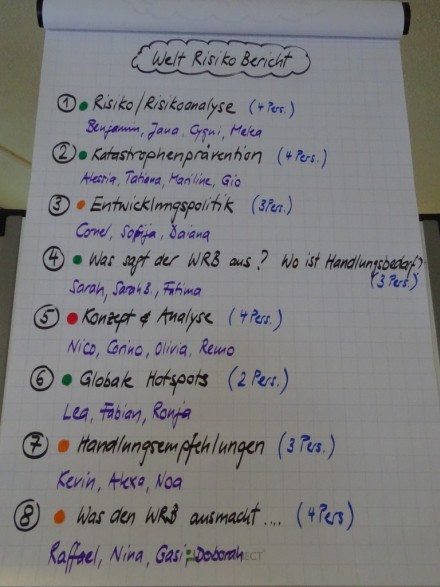 Welt Risiko Bericht
① Risiko/Risikoanalyse (4 Pers.)
Benjamin, Jana, Cygni, Melea
② Katastrophenprävention (4 Pers.)
Alessia, Tatiana, Mariline, Gio
③ Entwicklungspolitik (3 Pers.)
Corner, Sofija, Daiana
④ Was sagt der WRB aus? Wo ist Handlungsbedarf?
(3 Pers.)
Sarah, Sarah B., Fatima
⑤ Konzept & Analyse (4 Pers.)
Nico, Corino, Olivia, Remo
⑥ Globale Hotspots (2 Pers.)
Lea, Fabian, Ronja
⑦ Handlungsempfehlungen (3 Pers.)
Kevin, Alexa, Noa
⑧ Was den WRB ausmacht.... (4 Pers)
Raffael, Nina, Gasi, Deborah